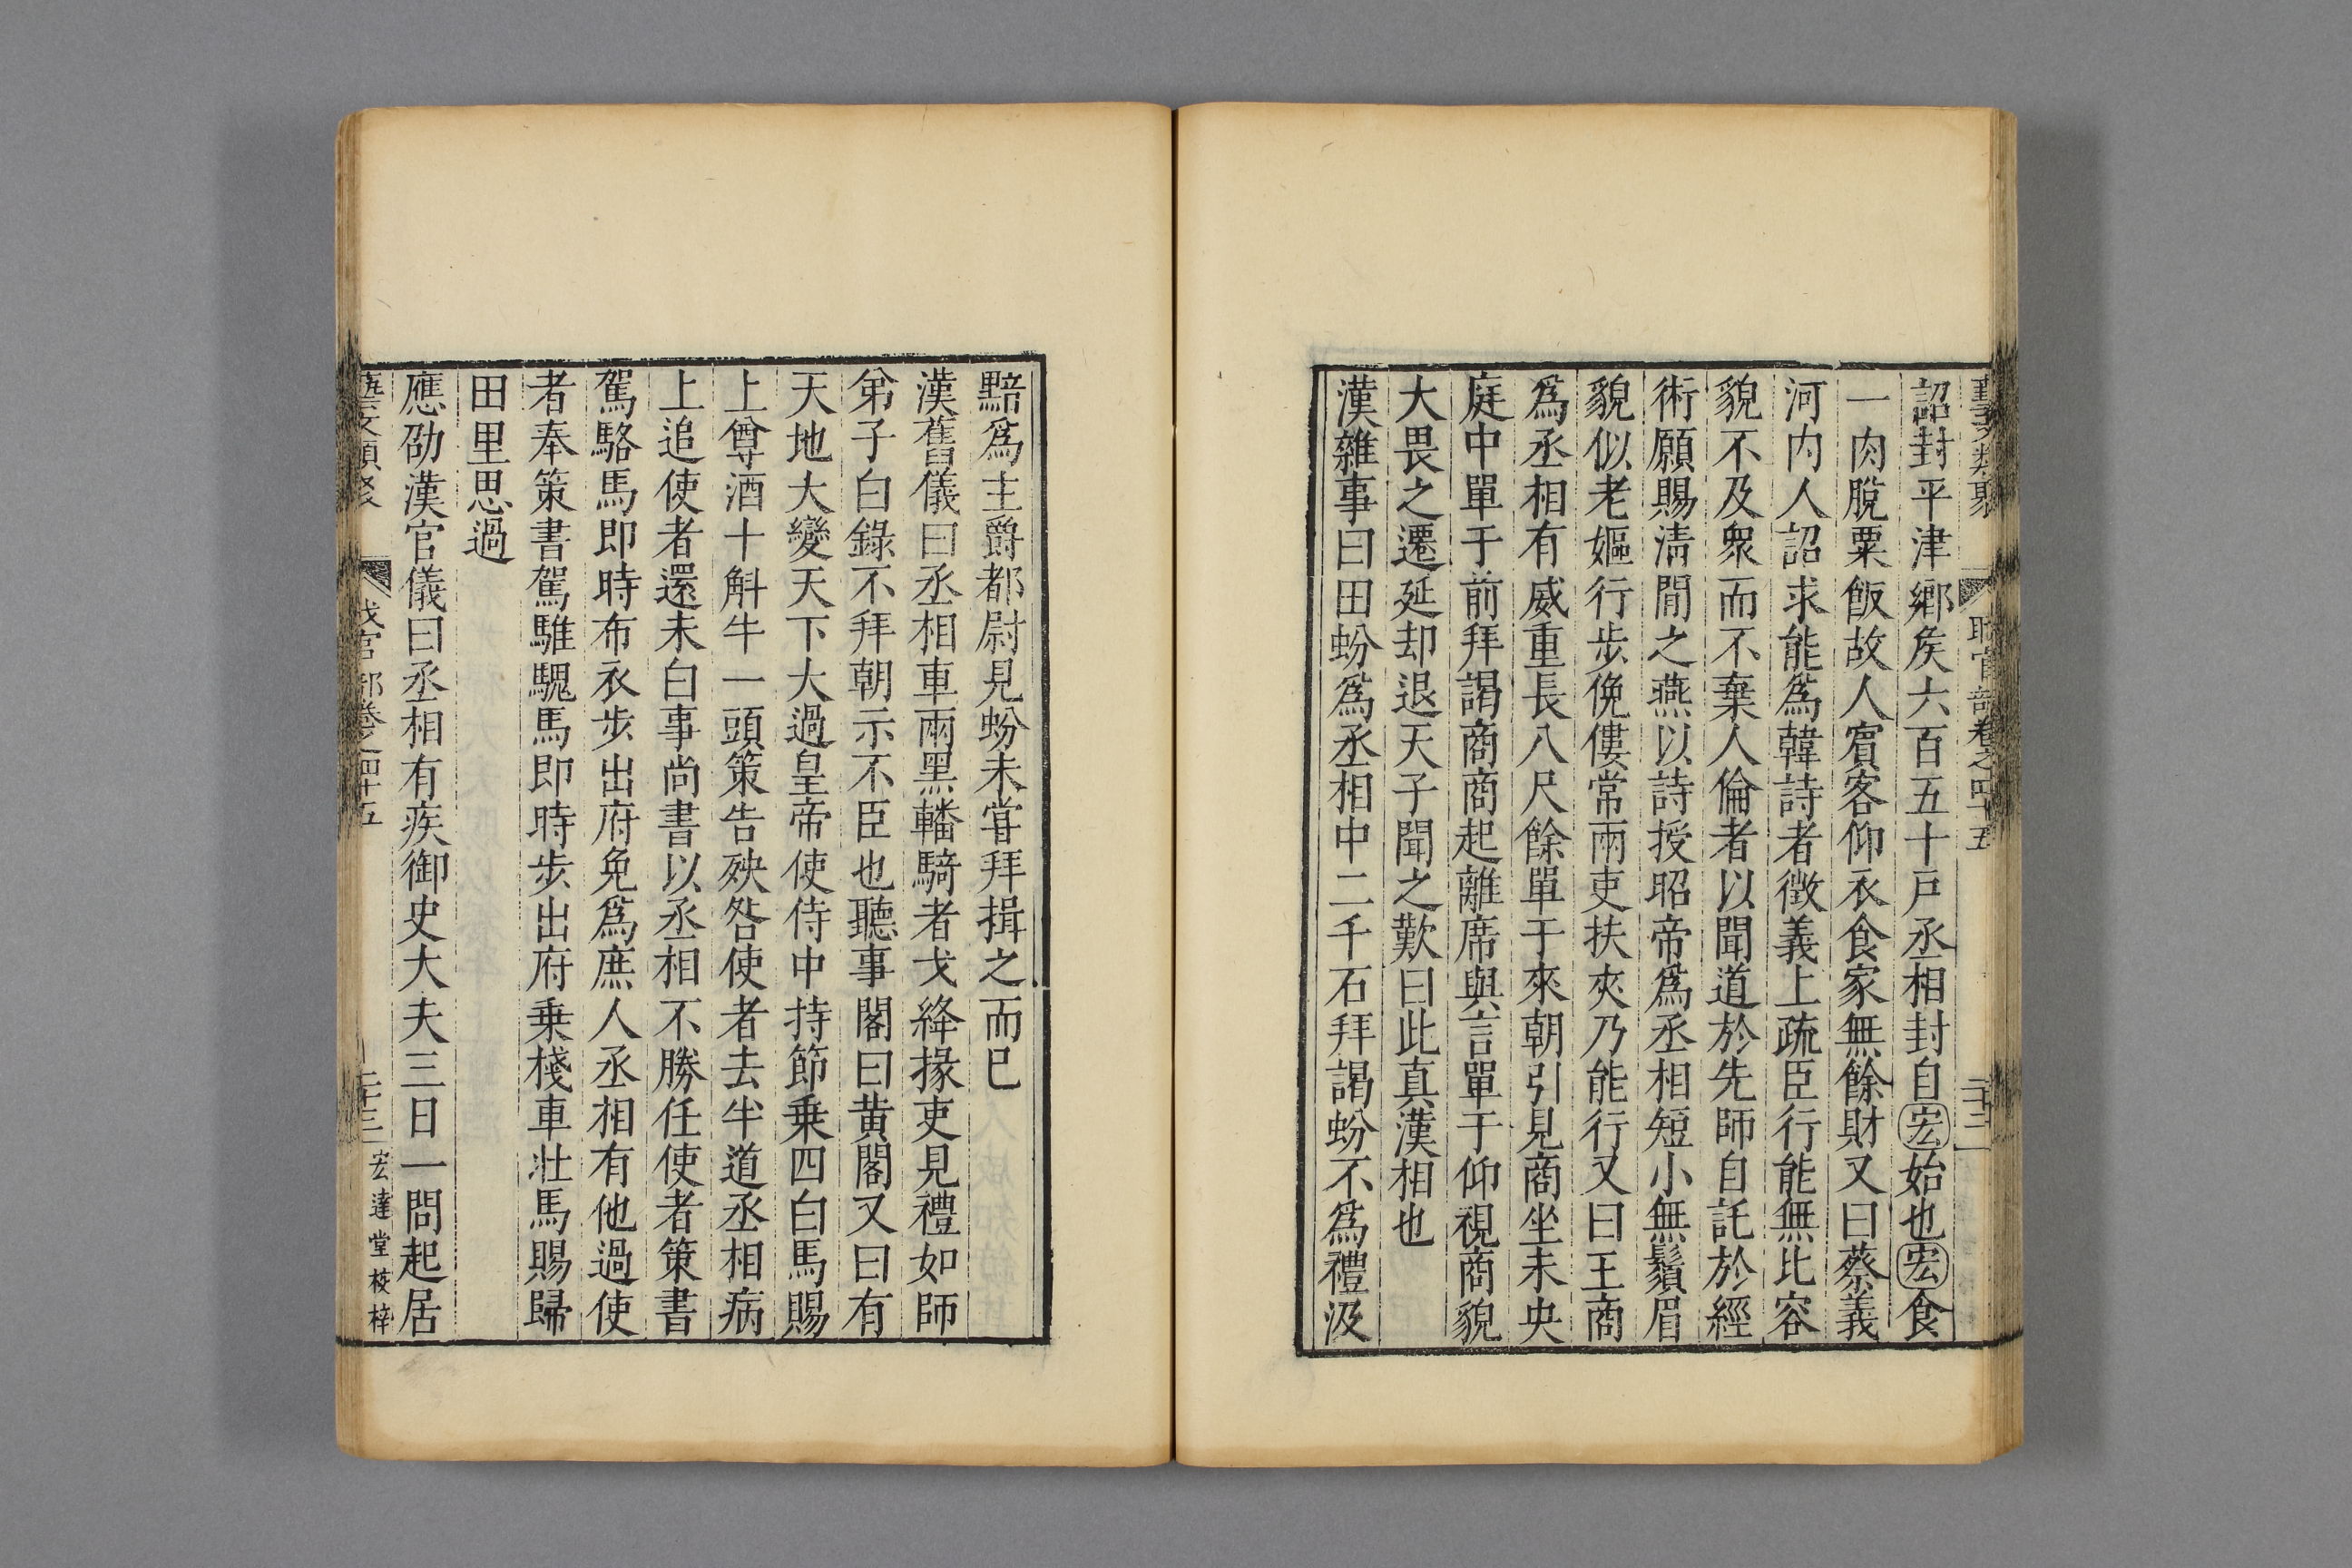 藝文類聚 職官部卷之四十五 二十二
詔封平津鄉矦六百五十戸丞相封自宏始也宏食
一肉脫粟飯故人賔客仰衣食家無餘財又曰蔡義
河内人詔求能爲韓詩者徴義上疏臣行能無比容
貌不及衆而不棄人倫者以聞道於先師自託於經
術願賜清閒之燕以詩授昭帝爲丞相短小無鬚眉
貌似老嫗行步俛僂常兩吏扶夾乃能行又曰王商
爲丞相有威重長八尺餘單于來朝引見商坐未央
庭中單于前拜謁商商起離席與言單于仰視商貌
大畏之遷延却退天子聞之歎曰此真漢相也
漢雜事曰田蚡爲丞相中二千石拜謁蚡不爲禮汲
黯爲主爵都尉見蚡未甞拜揖之而已
漢舊儀曰丞相車兩黑轓騎者戈絳掾吏見禮如師
弟子白錄不拜朝示不臣也聽事閣曰黄閣又曰有
天地大變天下大過皇帝使侍中持節乗四白馬賜
上尊酒十斛牛一頭策告殃咎使者去半道丞相病
上追使者還未白事尚書以丞相不勝任使者策書
駕駱馬即時布衣步出府免爲庶人丞相有他過使
者奉策書駕騅騩馬即時步出府乗棧車壯馬賜歸
田里思過
應劭漢官儀曰丞相有疾御史大夫三日一問起居
藝文類聚 職官部卷之四十五 二十三 宏達堂校梓